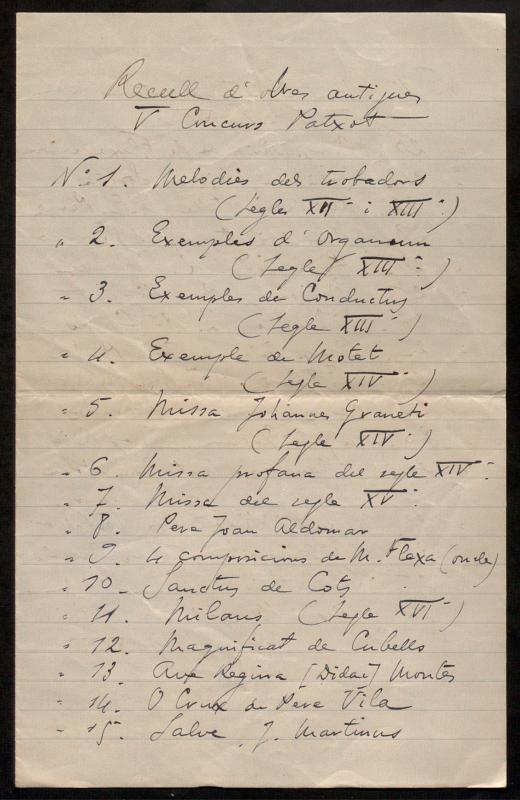 Recull d'obres antigues
V Concurs Patxot
Nº 1. Melodies dels trobadors
(segles XII i XIII)
" 2. Exemples d'Organum
(segle XIII)
" 3. Exemples de Conductus
(segle XIII)
" 4. Exemple de Motet
(segle XIV)
" 5. Missa Johannes Graneti
(segle XIV)
" 6. Missa profana del segle XIV
" 7. Missa del segle XV
" 8. Pere Joan Aldomar
" 9. 4 composicions de M. Flexa (oncle)
" 10. Sanctus de Cots
" 11. Milans (segle XVI)
" 12. Magnificat de Cubells
" 13. Ave Regina [Didac] Montes
" 14. O Crux de Pere Vila
" 15. Salve, J. Martinus